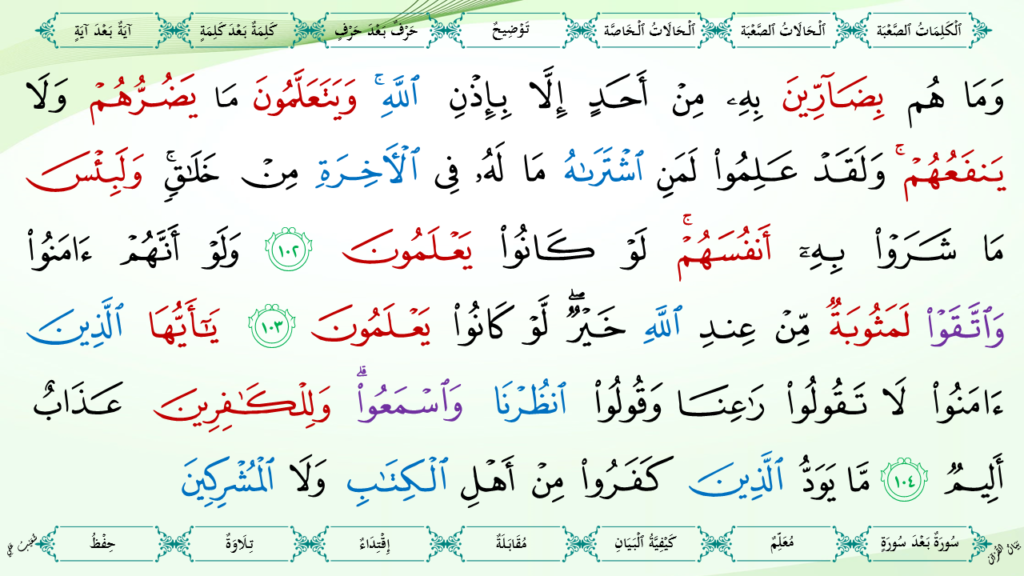 ٱلْكَلِمَاتُ ٱلصَّعْبَة ٱلْحَالَاتُ ٱلصَّعْبَة ٱلْحَالَاتُ ٱلْخَاصَّة تَوْضِيحٌ حَرْفٌ بَعْدَ حَرْفٍ كَلِمَةٌ بَعْدَ كَلِمَةٍ آيَةٌ بَعْدَ آيَةٍ
وَمَا هُم بِضَآرِّينَ بِهِۦ مِنْ أَحَدٍ إِلَّا بِإِذْنِ ٱللَّهِۚ وَيَتَعَلَّمُونَ مَا يَضُرُّهُمْ وَلَا
يَنفَعُهُمْۚ وَلَقَدْ عَلِمُوا۟ لَمَنِ ٱشْتَرَىٰهُ مَا لَهُۥ فِى ٱلْـَٔاخِرَةِ مِنْ خَلَـٰقٍۚ وَلَبِئْسَ
مَا شَرَوْا۟ بِهِۦٓ أَنفُسَهُمْۚ لَوْ كَانُوا۟ يَعْلَمُونَ ١٠٢ وَلَوْ أَنَّهُمْ ءَامَنُوا۟
وَٱتَّقَوْا۟ لَمَثُوبَةٌ مِّنْ عِندِ ٱللَّهِ خَيْرٌۖ لَّوْ كَانُوا۟ يَعْلَمُونَ ١٠٣ يَـٰٓأَيُّهَا ٱلَّذِينَ
ءَامَنُوا۟ لَا تَقُولُوا۟ رَٰعِنَا وَقُولُوا۟ ٱنظُرْنَا وَٱسْمَعُوا۟ۗ وَلِلْكَـٰفِرِينَ عَذَابٌ
أَلِيمٌ ١٠٤ مَّا يَوَدُّ ٱلَّذِينَ كَفَرُوا۟ مِنْ أَهْلِ ٱلْكِتَـٰبِ وَلَا ٱلْمُشْرِكِينَ
سُورَةٌ بَعْدَ سُورَةٍ مُعَلِّمٌ كَيْفِيَّةُ ٱلْبَيَانِ مُقَابَلَةٌ إِقْتِدَاءٌ تِلَاوَةٌ حِفْظٌ